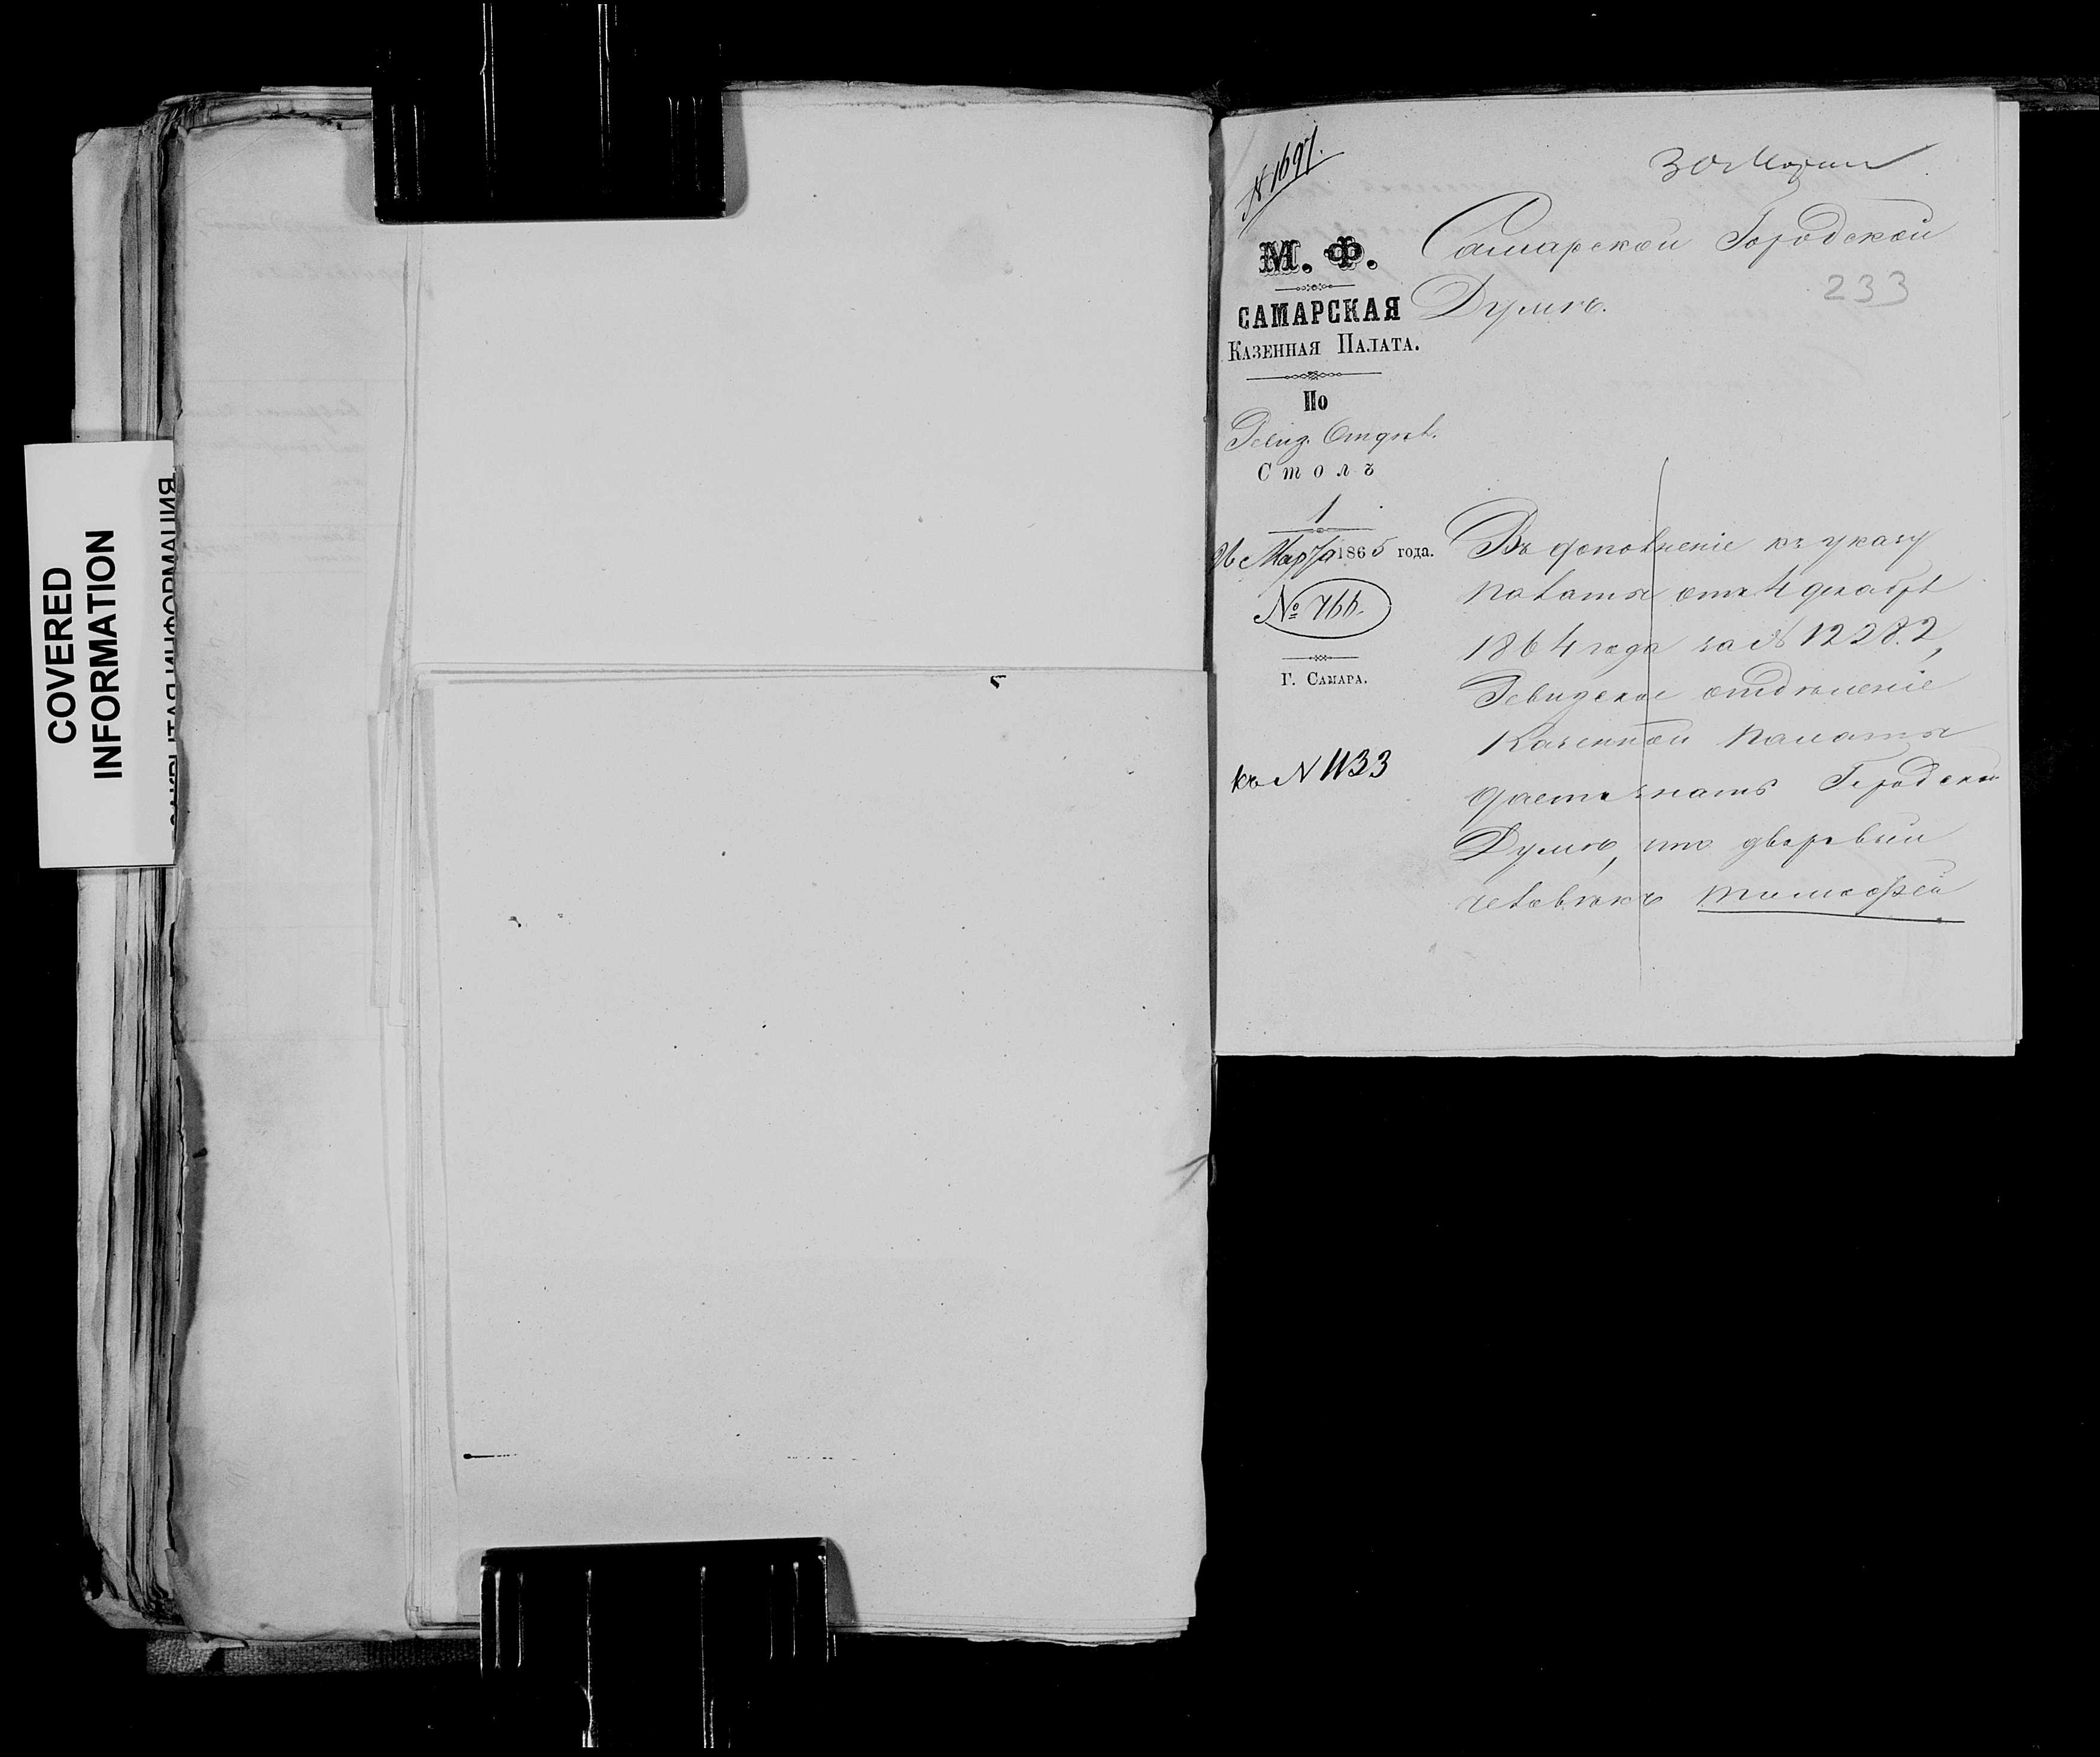 COVERED
INFORMATION
№ 1697.
30 Марта
М. Ф.
САМАРСКАЯ
КАЗЕННАЯ ПАЛАТА.
По
Ревиз. Отдѣл.
Столъ
1
26 Марта 1865 года.
№ 766.
Г. САМАРА.
къ N 1133
Самарской Городской
Думѣ.
233
Въ дополненіе къ указу
палаты отъ 4 декабря
1864 года за № 12282,
Ревизское отдѣленіе
Казенной палаты
даетъ знать Городской
Думѣ, что дворовый
человѣкъ Тимофей